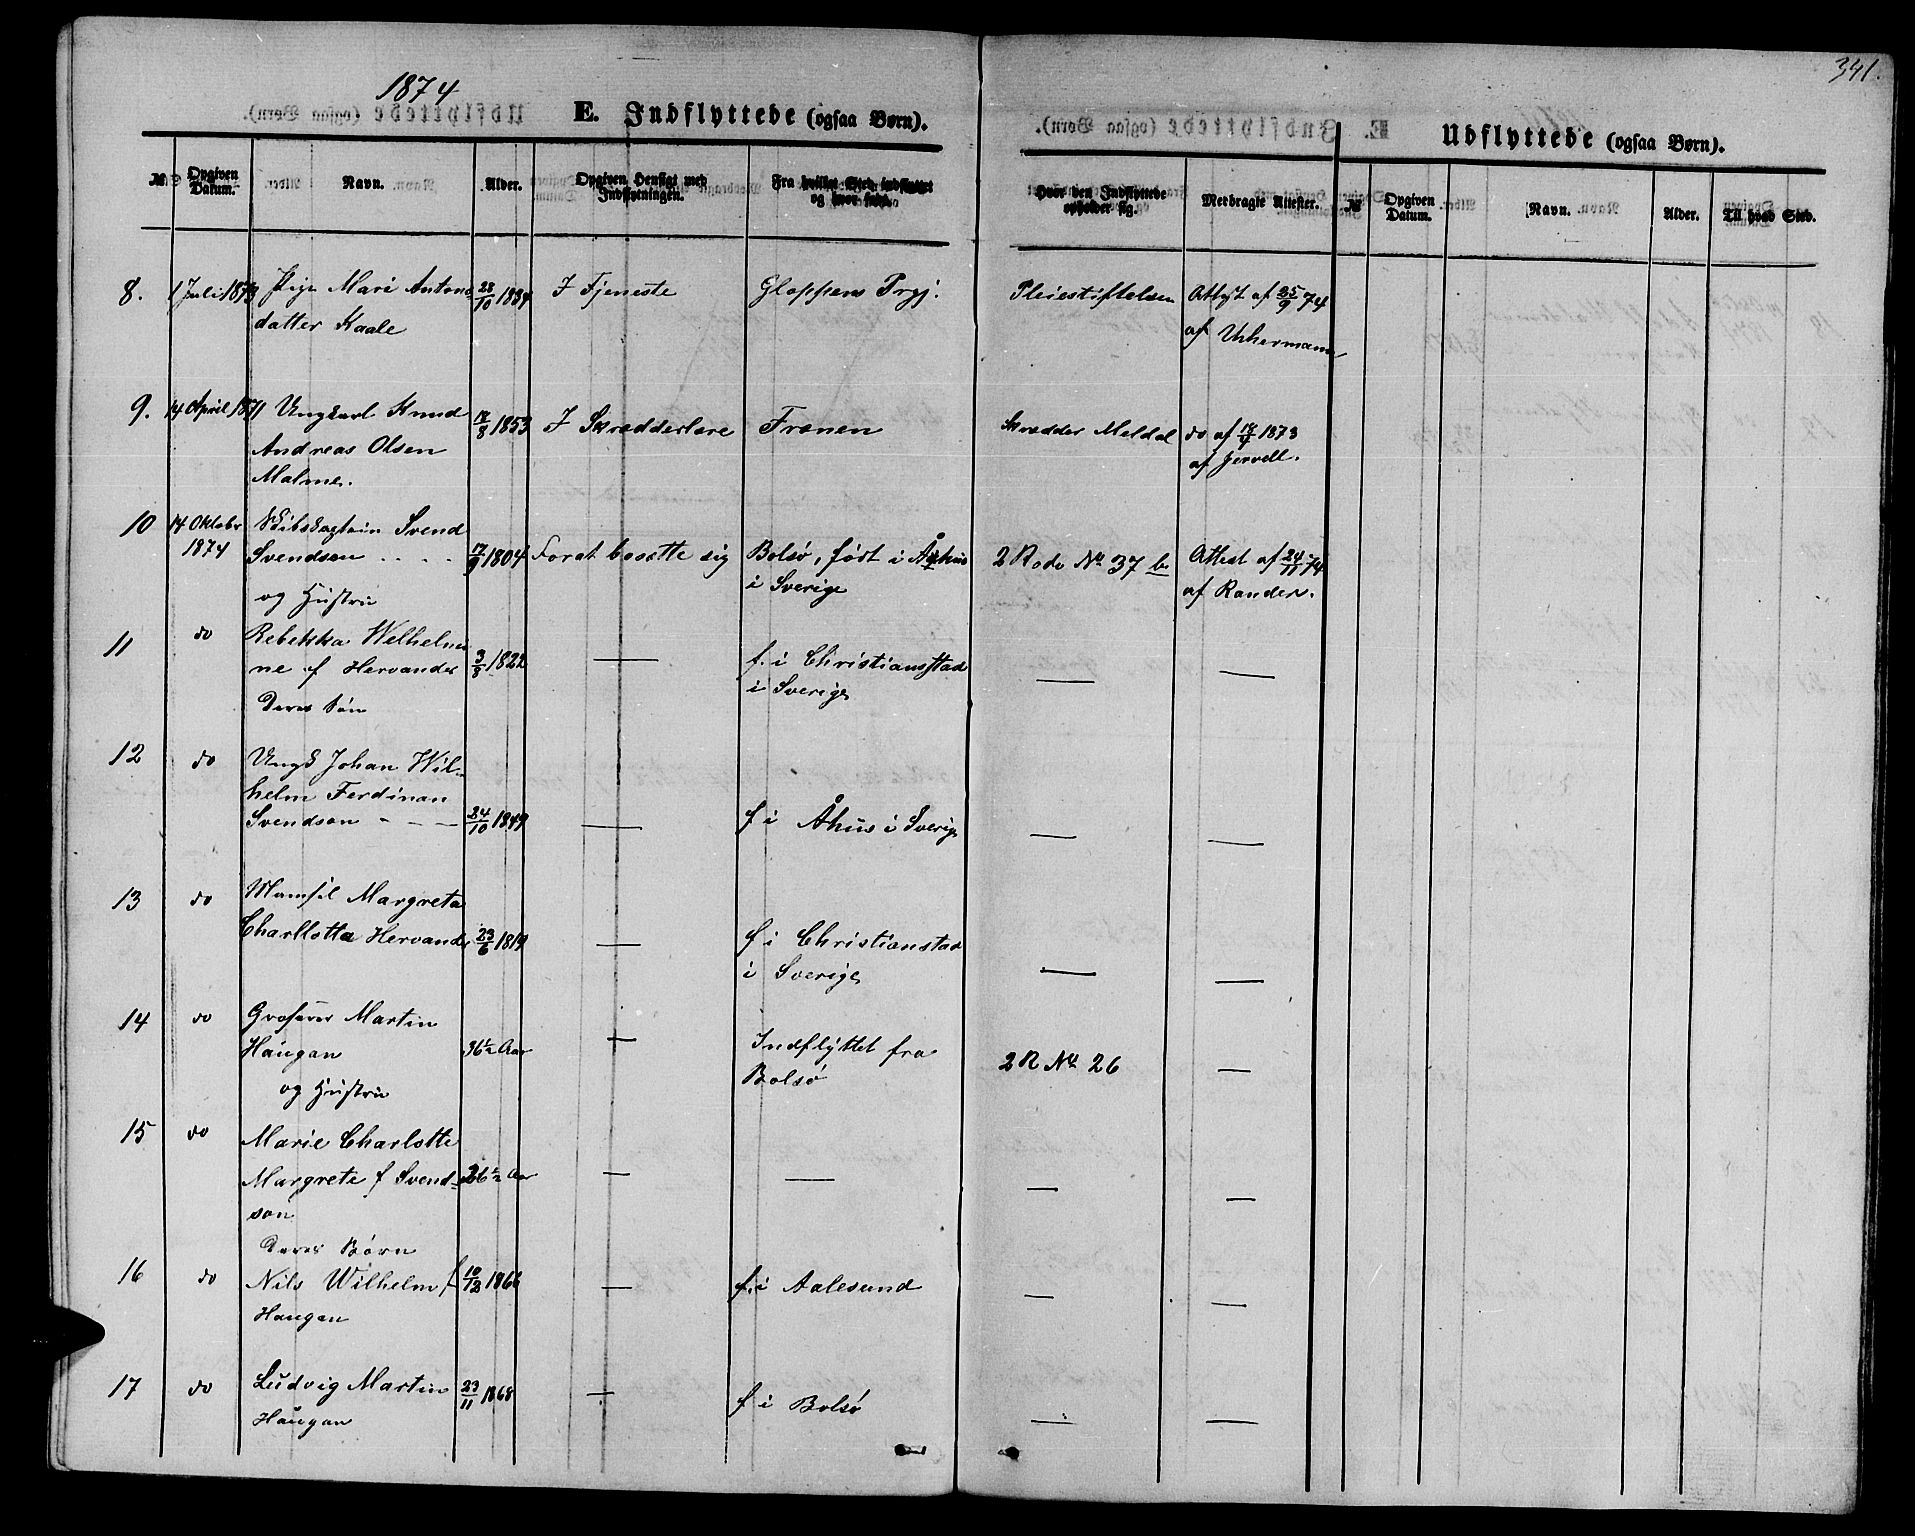 1874
341.
E. Indflyttede (ogsaa Børn).
Udflyttede (ogsaa Børn).
№ Opgiven Datum. Navn. Alder. Opgiven Hensigt med Indflytningen. Fra hvilket Sted indflyttet og hvor født. Hvor den Indflyttede opholder sig. Medbragte Attester. № Opgiven Datum. Navn. Alder. Til hvad Sted.
8. 1 Juli 1873 Pige Mari Antons 28/10 1834 I Tjeneste Gloppens Prgj. Pleiestiftelsen Attest af 25/9 74
datter Kaale af Uchermann
9. 14 April 1871 Ungkarl Knud 12/8 1853 I Skrædderlære Frænen Skrædder Meldal do af 18/9 1873
Andreas Olsen af Jervell.
Malme.
10 14 Oktober Skibskaptein Svend
1874 Svendson 17/9 1804 For at bosætte sig Bolsø, født i Åhus 2 Rode No 37 b. Attest af 24/11 74
og Hustru i Sverige af Rander.
11 do Rebekka Wilhelmi
ne f Hervander 3/8 1822 — f. i Christiansstad — —
Deres Søn i Sverige
12 do Ungk Johan Wil-
helm Ferdinan
Svendson - - — 24/10 1849 — f i Åhus i Sverige — —
13 do Mamsel Margreta
Charllotta Hervander 23/6 1819 — f i Christianstad — —
i Sverige
14 do Grosserer Martin
Haugan 36½ Aar — Indflyttet fra 2 R No 26 —
og Hustru Bolsø
15 do Marie Charlotte
Margrete f Svend- 26½ Aar — — — —
son
Deres Børn
16 do Nils Wilhelm f 10/12 1866 — f. i Aalesund — —
Haugan
17 do Ludvig Martin 23/11 1868 — f i Bolsø — —
Haugan